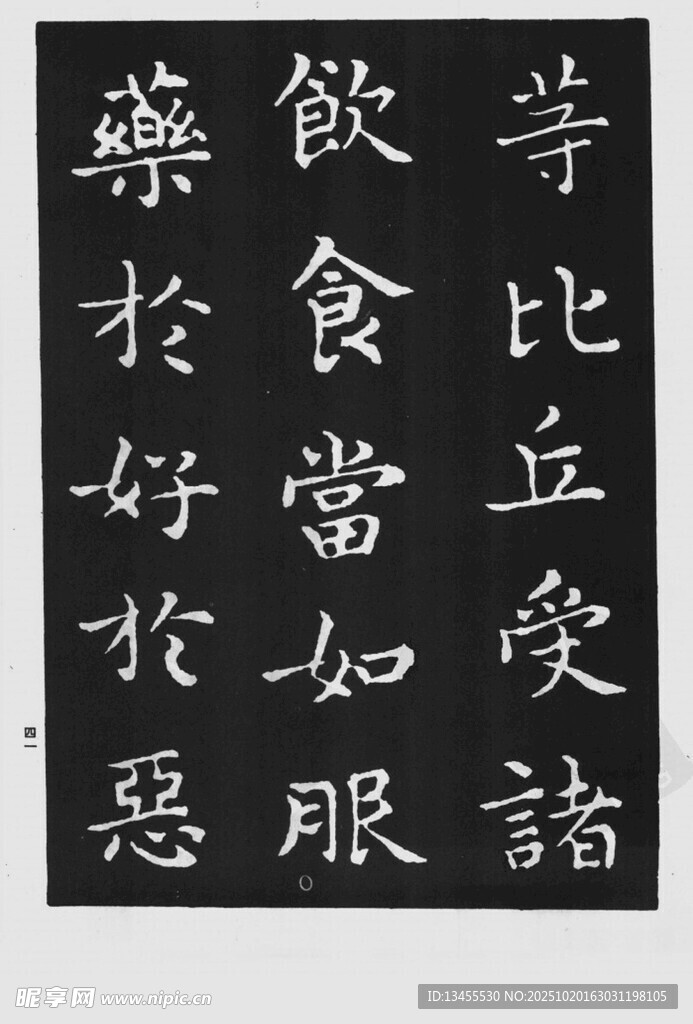 等比丘受諸
飲食當如服
藥於好於惡
四一
昵享网 www.nipic.cn
ID:13455530 NO:20251020163031198105